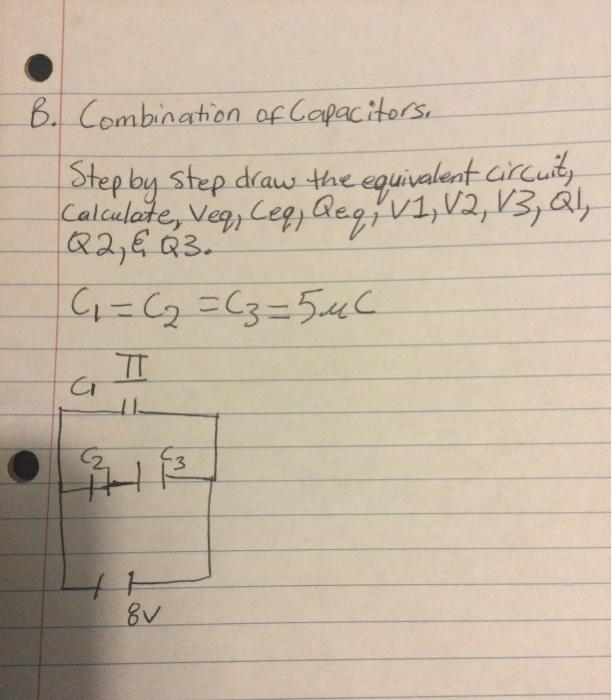 B. Combination of Capacitors.
Step by step draw the equivalent circuit,
Calculate, Veq, Ceq, Qeq, V1, V2, V3, Q1,
Q2, & Q3.
C₁ = C₂ = C₃ = 5μC
II
C1
C2 C3
8V